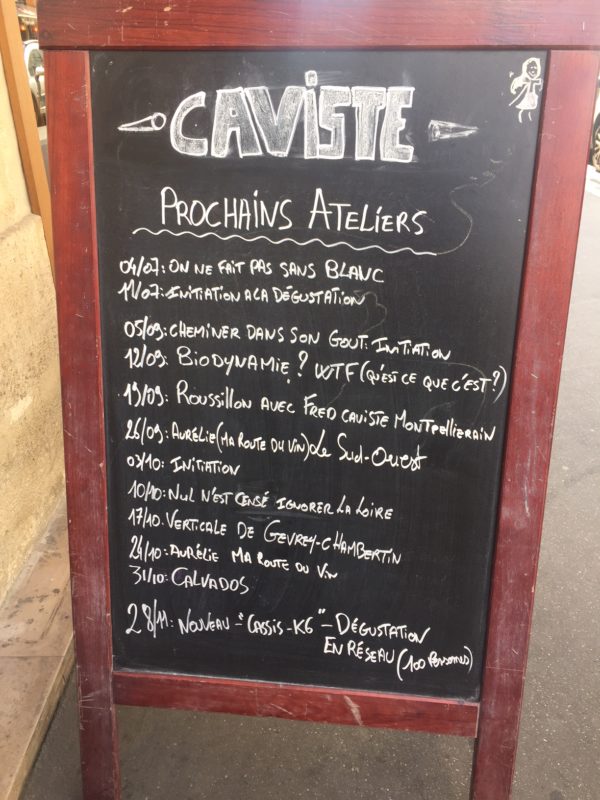 CAVISTE
PROCHAINS ATELIERS
04/07: ON NE FAIT PAS SANS BLANC
11/07: INITIATION A LA DÉGUSTATION
05/09: CHEMINER DANS SON GOUT: INITIATION
12/09: BIODYNAMIE? WTF (QU'EST CE QUE C'EST?)
19/09: ROUSSILLON AVEC FRED CAVISTE MONTPELLIERAIN
26/09: AURÉLIE (MA ROUTE DU VIN) Le SUD-OUEST
03/10: INITIATION
10/10: NUL N'EST CENSÉ IGNORER LA LOIRE
17/10: VERTICALE DE GEVREY-CHAMBERTIN
24/10: AURÉLIE MA ROUTE DU VIN
31/10: CALVADOS
28/11: NOUVEAU - "CASSIS-K6" - DÉGUSTATION
EN RÉSEAU (100 PERSONNES)